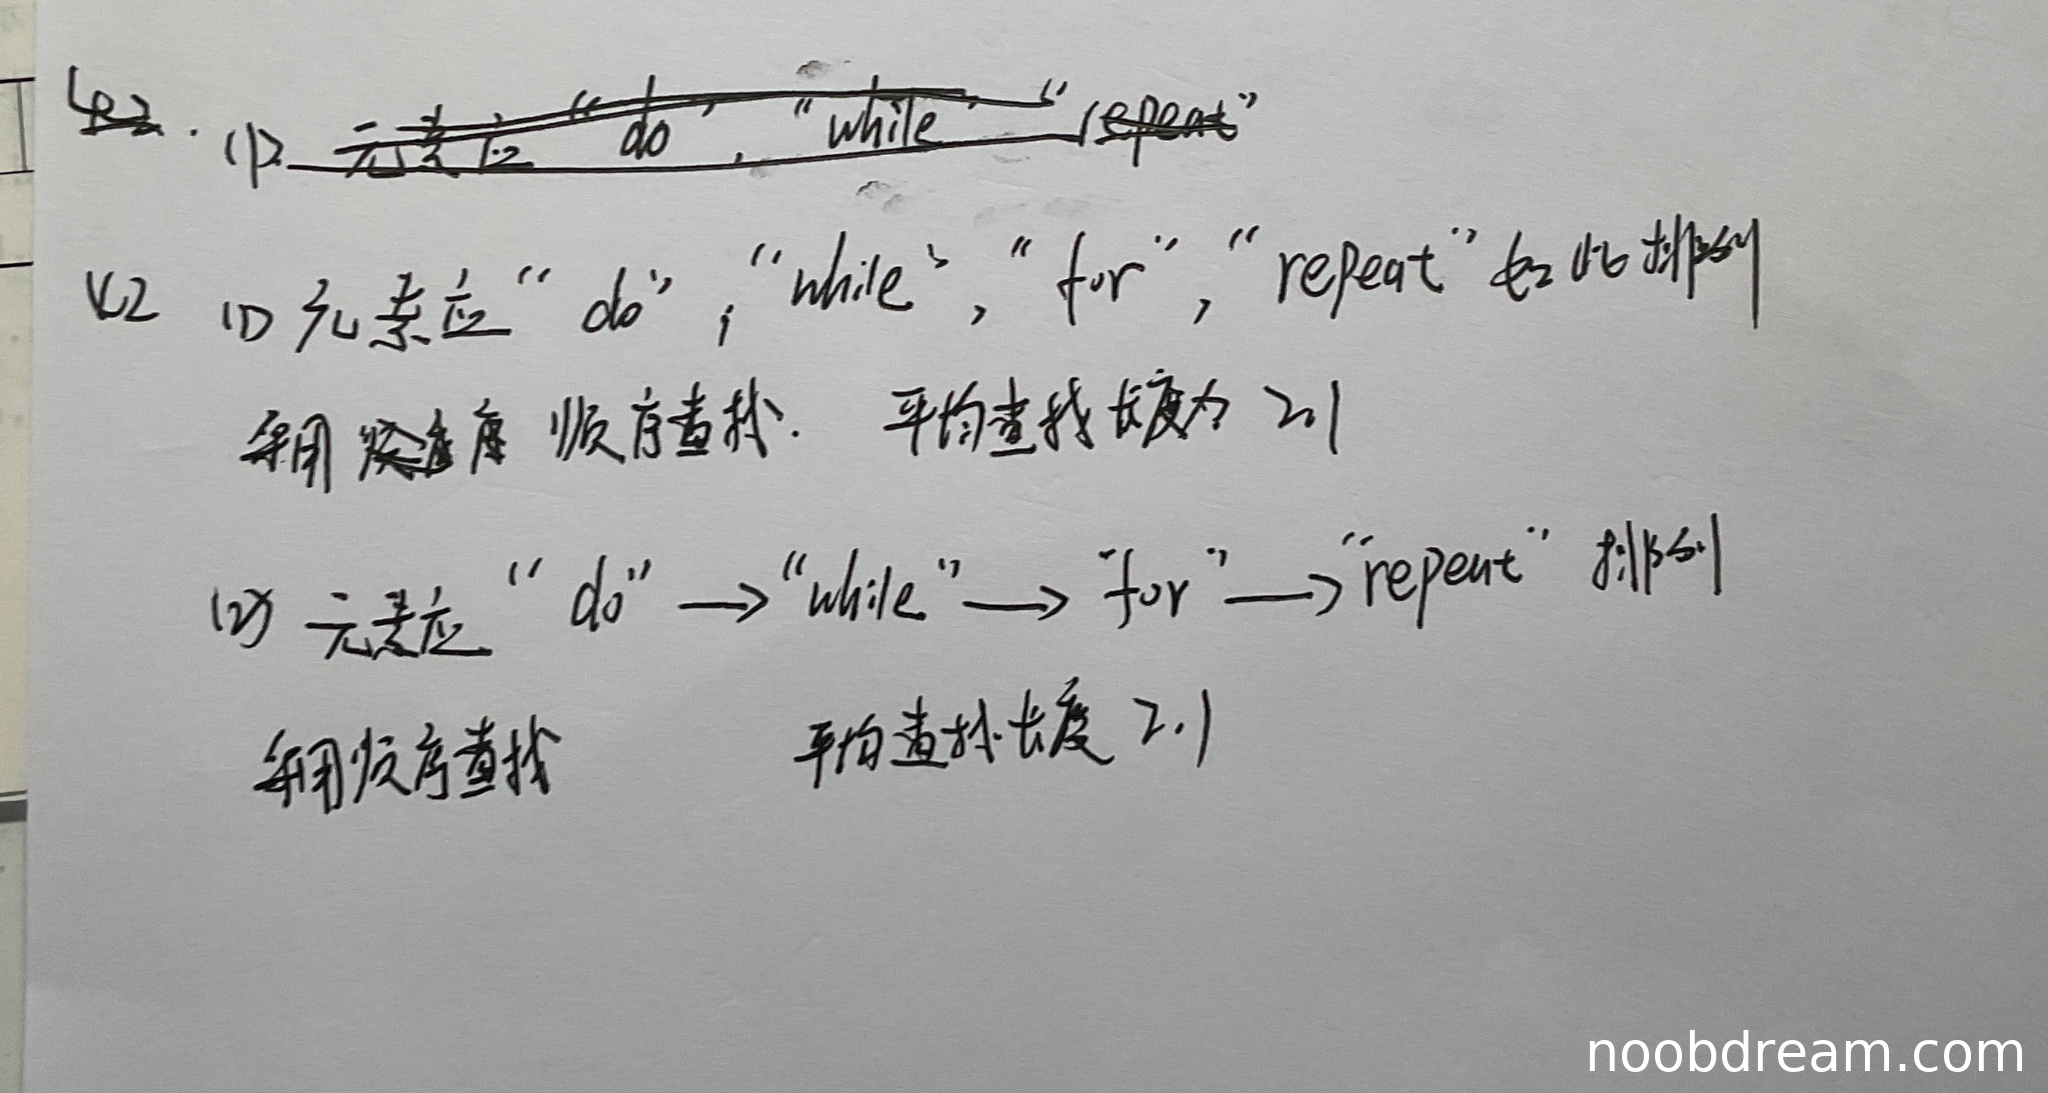 (1). 元素应 "do", "while", "repeat"
42 (1) 元素应 "do", "while", "for", "repeat" 如此排列
采用 顺序查找. 平均查找长度为 2.1
(2) 元素应 "do" → "while" → "for" → "repeat" 排列
采用顺序查找 平均查找长度 2.1
noobdream.com